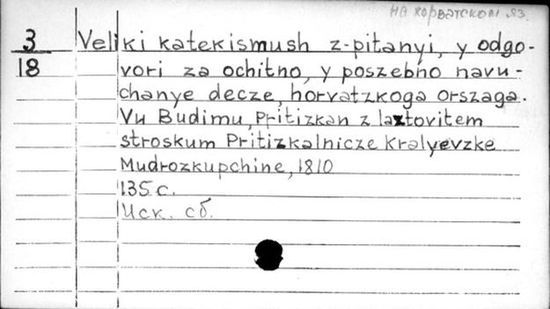 на хорватском яз.
3
18
Veliki katekismush z-pitanyi, y odgo-
vori za ochitno, y poszebno navu-
chanye decze, horvatzkoga orszaga.
Vu Budimu, Pritizkan z laztovitem
stroskum Pritizkalnicze Kralyevzke
Mudrozkupchine, 1810
135 с.
Иск. сб.